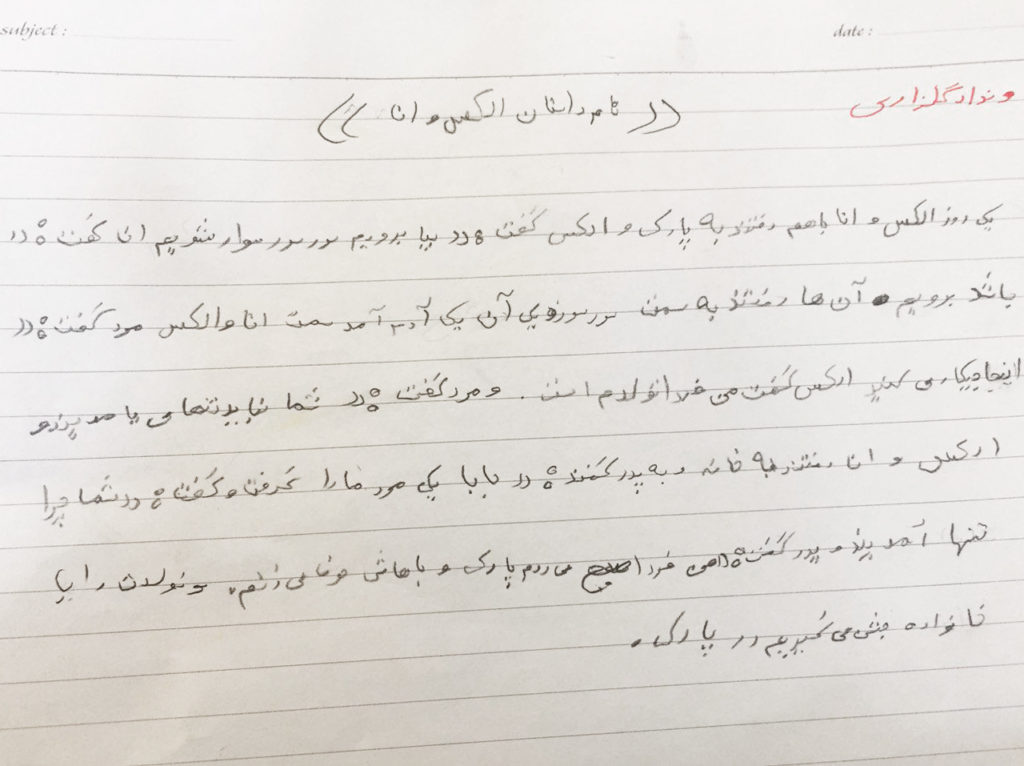 subject :
date :
ونداد گلزاری
(( نام داستان الکس و انا ))
یک روز الکس و انا باهم رفتند به پارک و الکس گفت : (( بیا برویم سرسره سوار شویم انا گفت : ((
باشد برویم . آن ها رفتند به سمت سرسره آن یک آدم آمد سمت انا و الکس مرد گفت : ((
اینجا چیکار می کنید الکس گفت من فردا تولدم است . و مرد گفت : (( شما نباید تنهایی می آمدیدو
الکس و انا رفتند به خانه و به پدر گفتند : (( بابا یک مرد مارا گرفت و گفت : (( شما چرا
تنها آمدید و پدر گفت : (( من فردا صبح می روم پارک و باهاش حرف می زنم . و تولدت را با
خانواده جشن می گیریم در پارک .